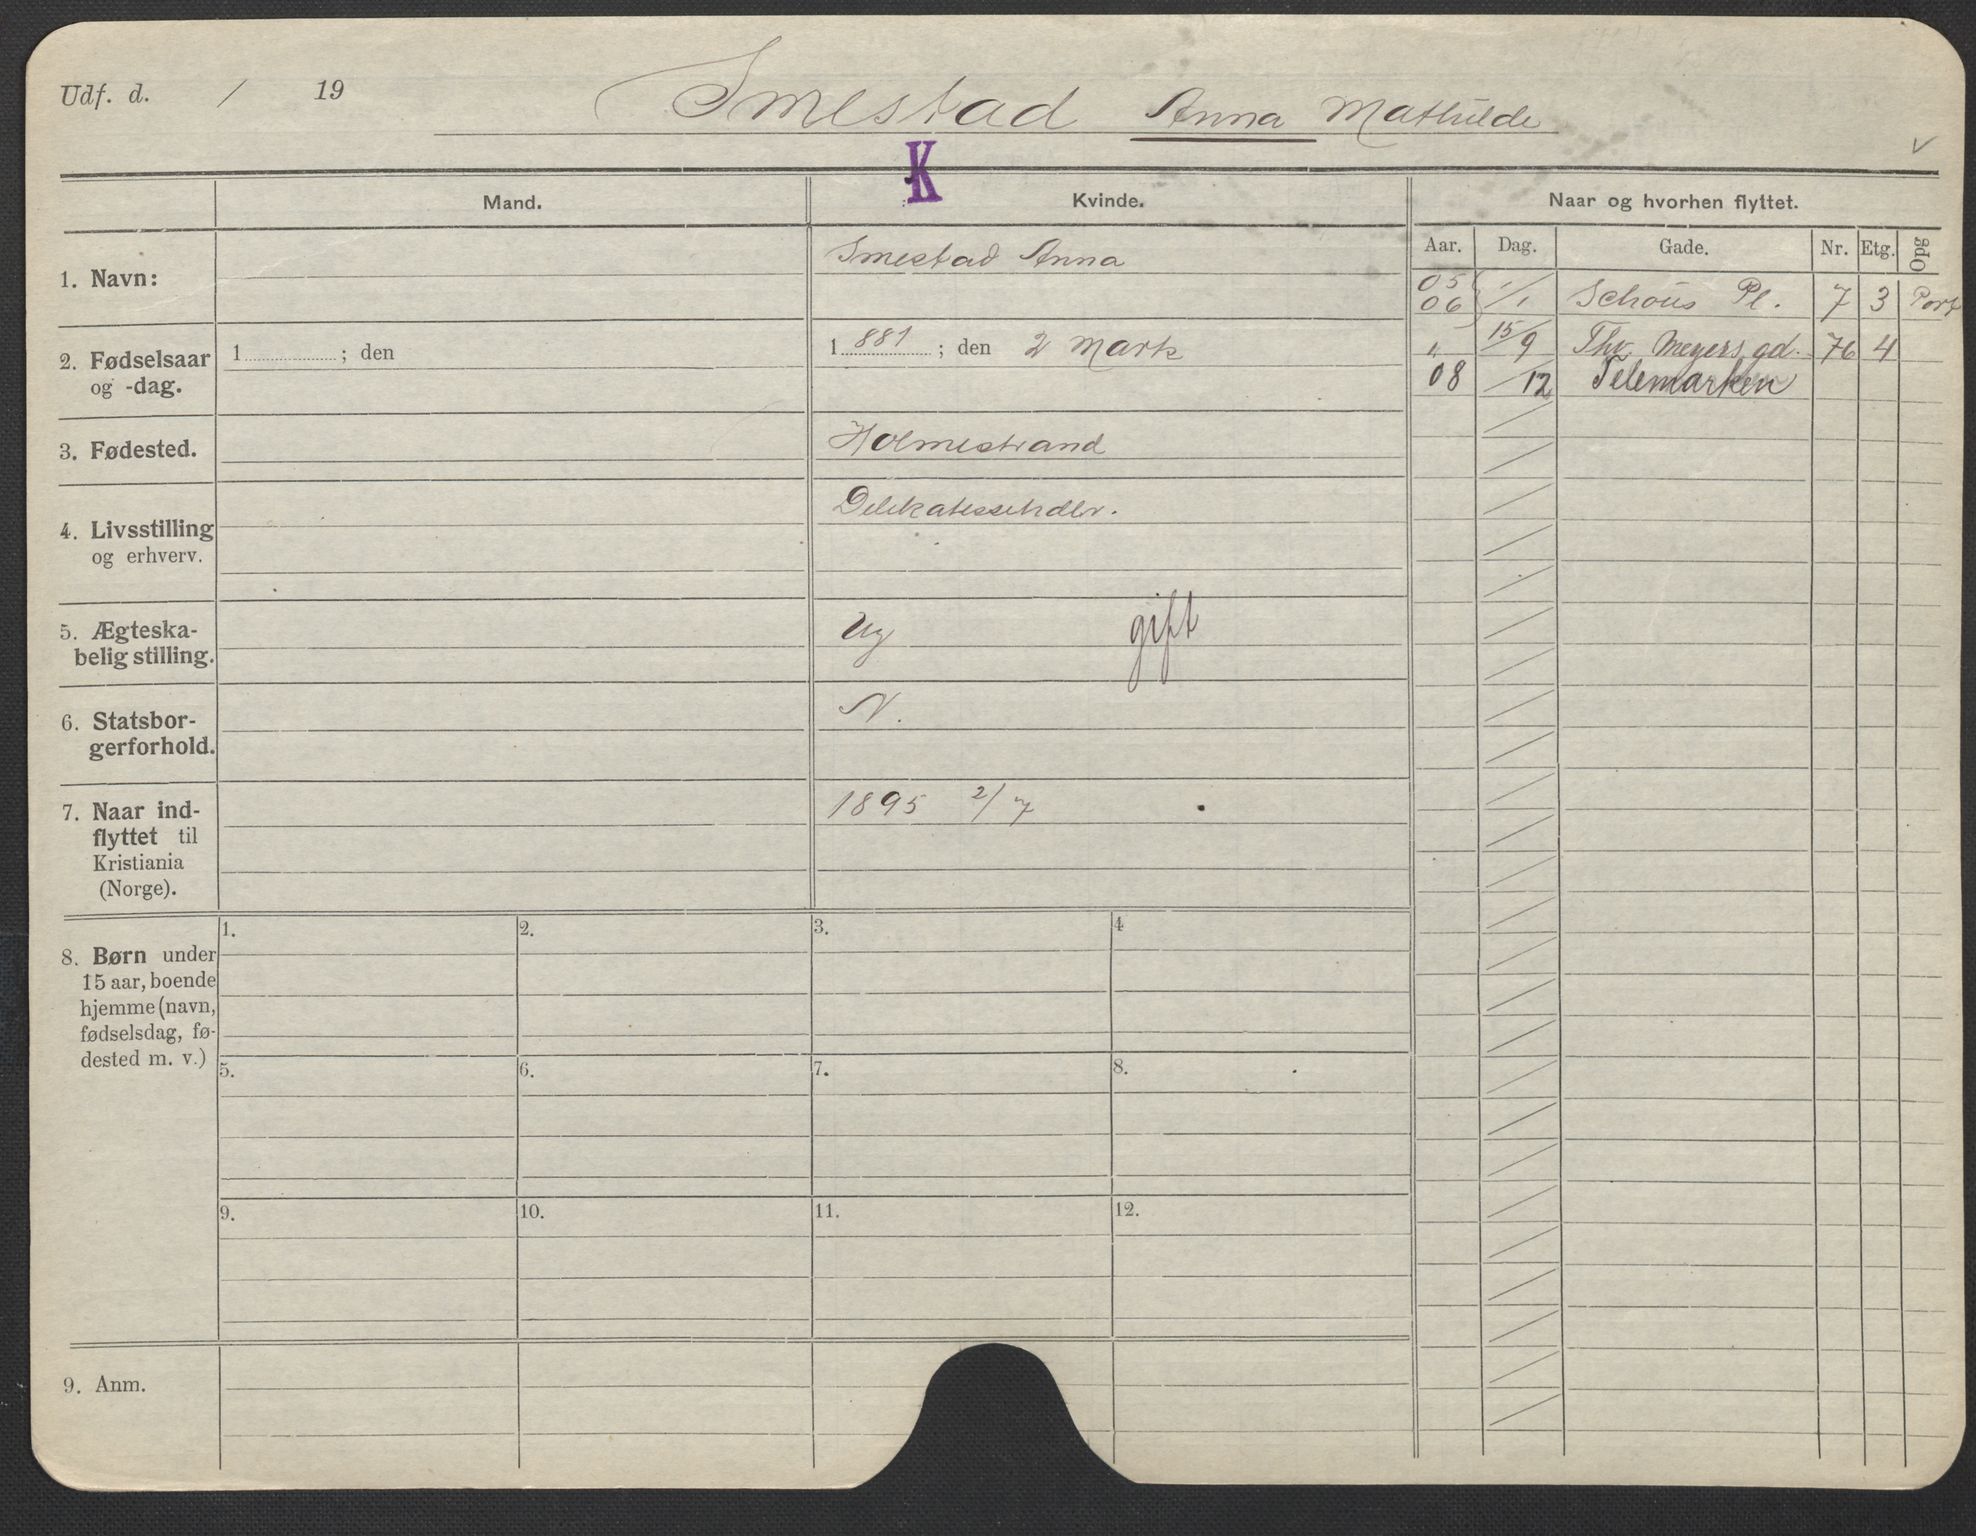 Udf. d. / 19
Smestad Anna Mathilde
K
Mand.
Kvinde.
Naar og hvorhen flyttet.
Aar. Dag. Gade. Nr. Etg. Opg
1. Navn:
Smestad Anna
05
06 1/1 Schous Pl. 7 3 Port
" 15/9 Thv. Meyers gd. 76 4
08 /12 Telemarken
2. Fødselsaar
og -dag.
1 ; den
1881 ; den 2 Marts
3. Fødested.
Holmestrand
4. Livsstilling
og erhverv.
Delikatessehdlr.
5. Ægteska-
belig stilling.
Ug gift
6. Statsbor-
gerforhold.
N.
7. Naar ind-
flyttet til
Kristiania
(Norge).
1895 2/7
8. Børn under
15 aar, boende
hjemme (navn,
fødselsdag, fø-
dested m. v.)
1. 2. 3. 4
5. 6. 7. 8.
9. 10. 11. 12.
9. Anm.